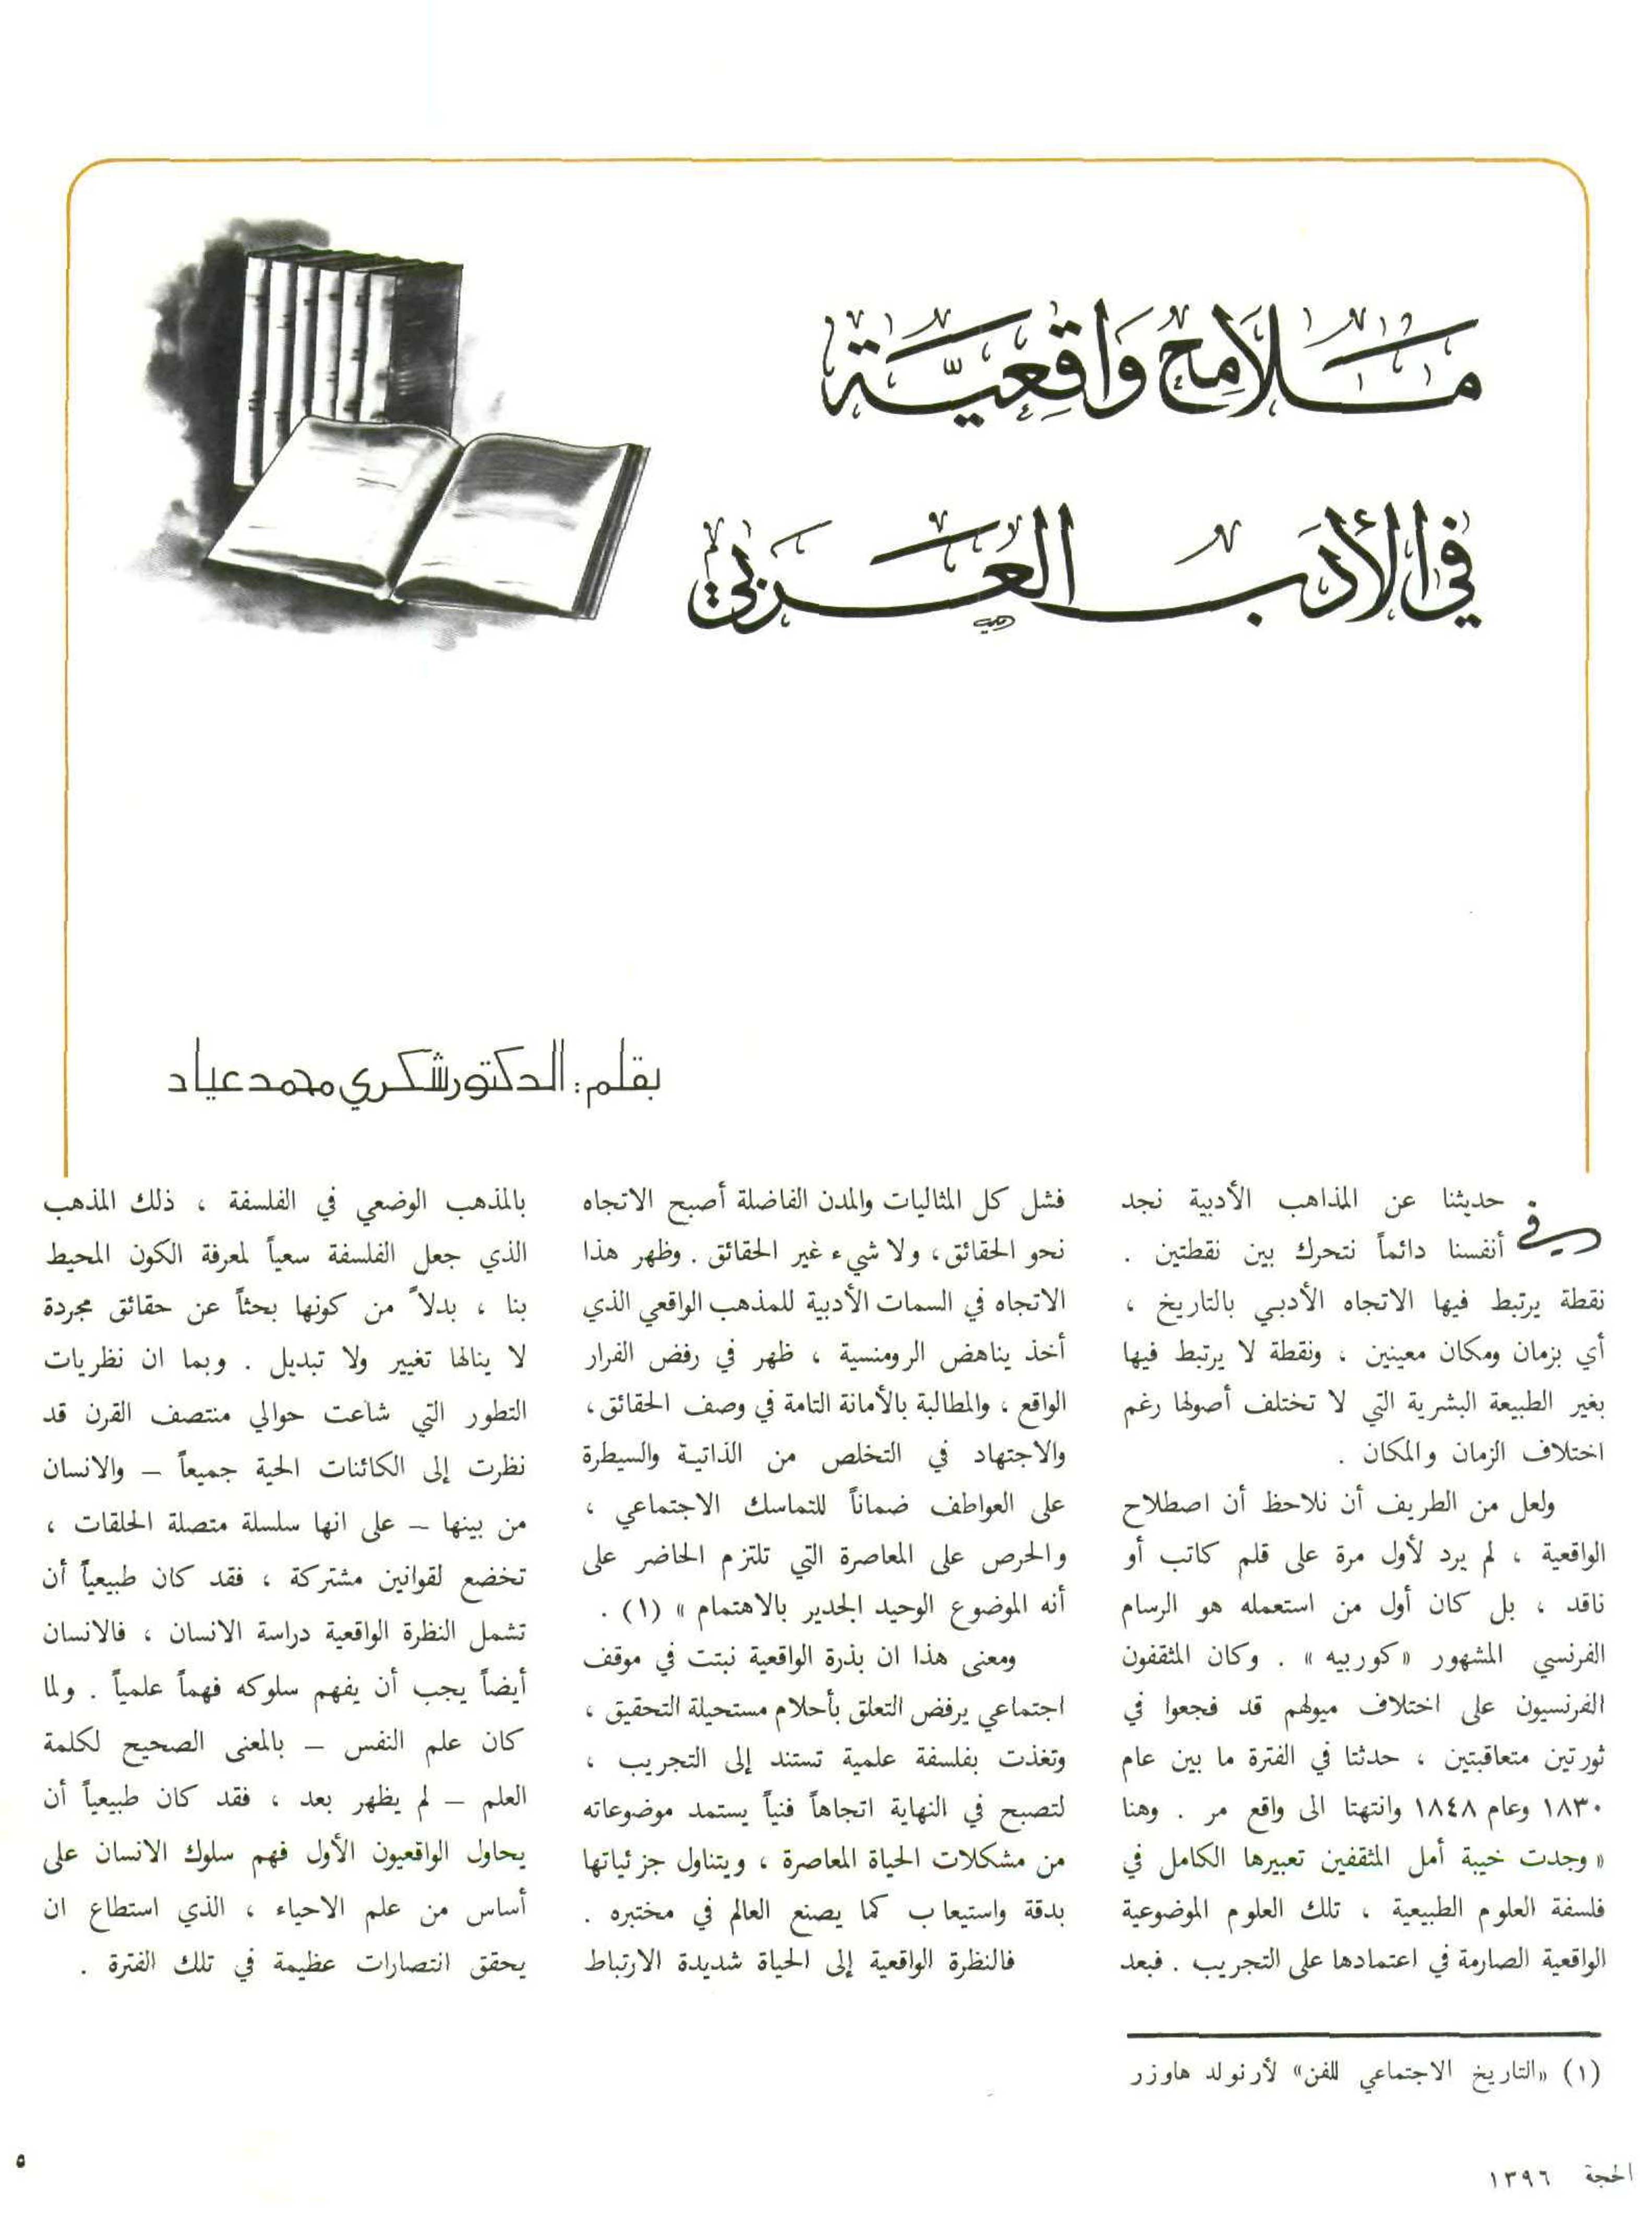 ملامح واقعية
في الأدب العربي
بقلم : الدكتور شكري محمد عياد
في حديثنا عن المذاهب الأدبية نجد
أنفسنا دائماً نتحرك بين نقطتين .
نقطة يرتبط فيها الاتجاه الأدبي بالتاريخ ،
أي بزمان ومكان معينين ، ونقطة لا يرتبط فيها
بغير الطبيعة البشرية التي لا تختلف أصولها رغم
اختلاف الزمان والمكان .
ولعل من الطريف أن نلاحظ أن اصطلاح
الواقعية ، لم يرد لأول مرة على قلم كاتب أو
ناقد ، بل كان أول من استعمله هو الرسام
الفرنسي المشهور « كوربيه » . وكان المثقفون
الفرنسيون على اختلاف ميولهم قد فجعوا في
ثورتين متعاقبتين ، حدثتا في الفترة ما بين عام
١٨٣٠ وعام ١٨٤٨ وانتهتا الى واقع مر . وهنا
« وجدت خيبة أمل المثقفين تعبيرها الكامل في
فلسفة العلوم الطبيعية ، تلك العلوم الموضوعية
الواقعية الصارمة في اعتمادها على التجريب . فبعد
فشل كل المثاليات والمدن الفاضلة أصبح الاتجاه
نحو الحقائق ، ولا شيء غير الحقائق . وظهر هذا
الاتجاه في السمات الأدبية للمذهب الواقعي الذي
أخذ يناهض الرومنسية ، ظهر في رفض الفرار
الواقع ، والمطالبة بالأمانة التامة في وصف الحقائق ،
والاجتهاد في التخلص من الذاتية والسيطرة
على العواطف ضماناً للتماسك الاجتماعي ،
والحرص على المعاصرة التي تلتزم الحاضر على
أنه الموضوع الوحيد الجدير بالاهتمام » (١) .
ومعنى هذا ان بذرة الواقعية نبتت في موقف
اجتماعي يرفض التعلق بأحلام مستحيلة التحقيق ،
وتغذت بفلسفة علمية تستند إلى التجريب ،
لتصبح في النهاية اتجاهاً فنياً يستمد موضوعاته
من مشكلات الحياة المعاصرة ، ويتناول جزئياتها
بدقة واستيعاب كما يصنع العالم في مختبره .
فالنظرة الواقعية إلى الحياة شديدة الارتباط
بالمذهب الوضعي في الفلسفة ، ذلك المذهب
الذي جعل الفلسفة سعياً لمعرفة الكون المحيط
بنا ، بدلاً من كونها بحثاً عن حقائق مجردة
لا ينالها تغيير ولا تبديل . وبما ان نظريات
التطور التي شاعت حوالي منتصف القرن قد
نظرت إلى الكائنات الحية جميعاً – والانسان
من بينها – على انها سلسلة متصلة الحلقات ،
تخضع لقوانين مشتركة ، فقد كان طبيعياً أن
تشمل النظرة الواقعية دراسة الانسان ، فالانسان
أيضاً يجب أن يفهم سلوكه فهماً علمياً . ولما
كان علم النفس – بالمعنى الصحيح لكلمة
العلم – لم يظهر بعد ، فقد كان طبيعياً أن
يحاول الواقعيون الأول فهم سلوك الانسان على
أساس من علم الاحياء ، الذي استطاع ان
يحقق انتصارات عظيمة في تلك الفترة .
(١) «التاريخ الاجتماعي للفن» لأرنولد هاوزر
الحجة ١٣٩٦
٥